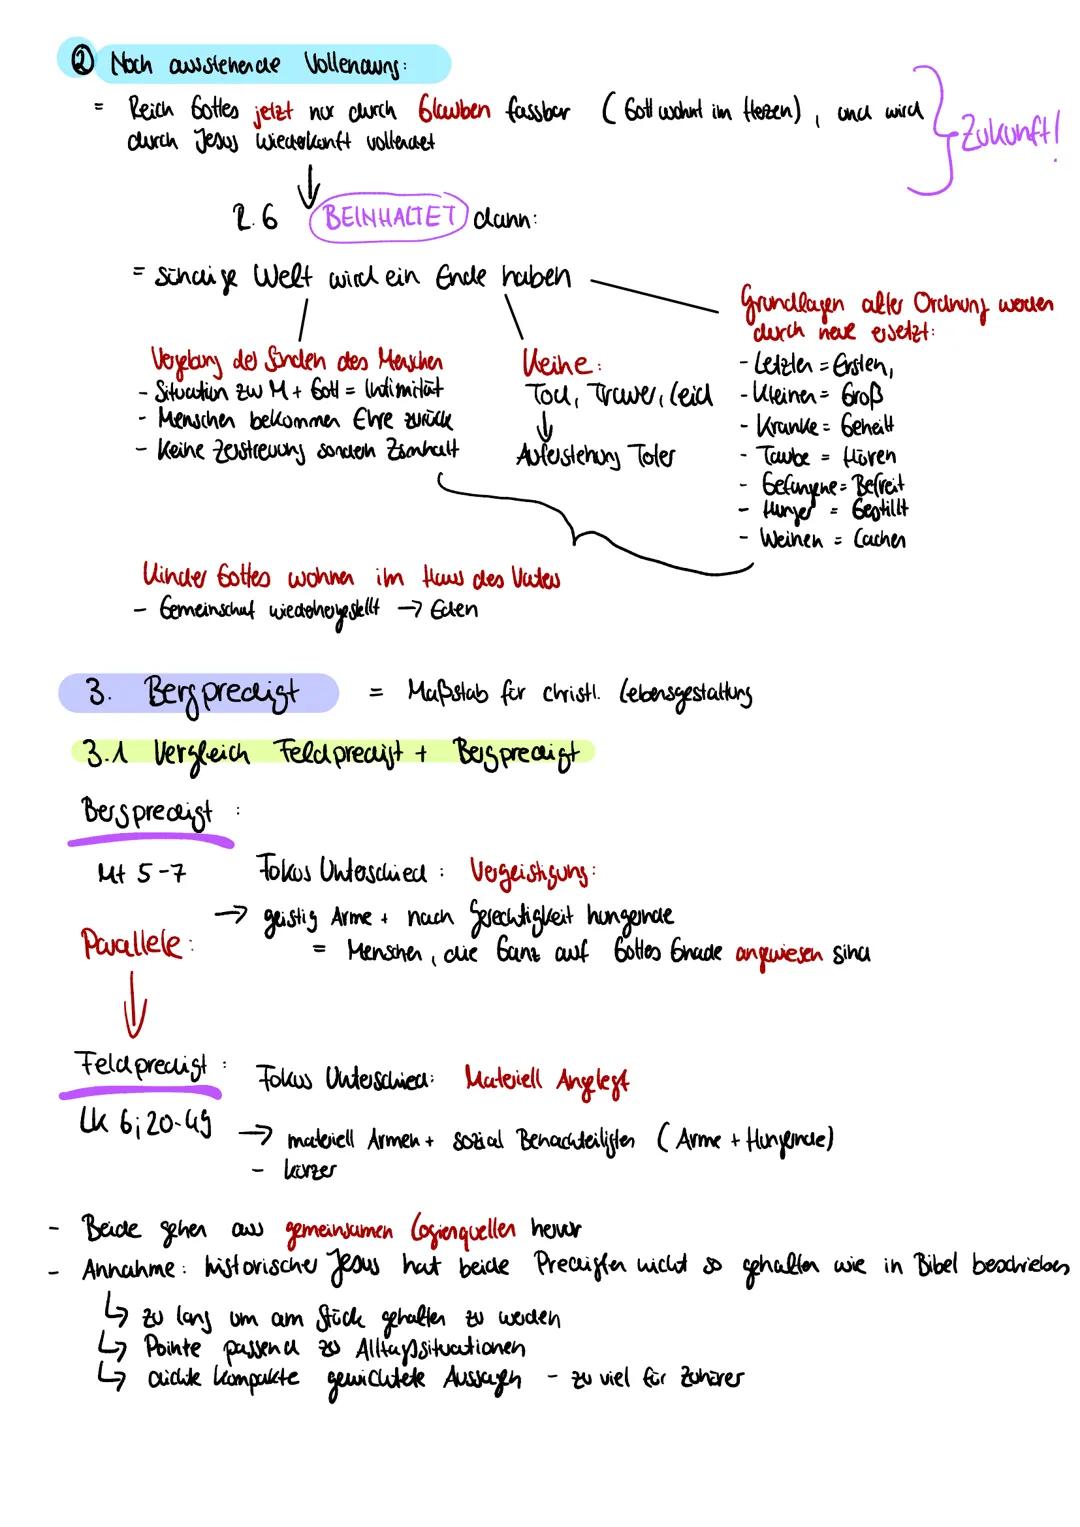 ② Noch ausstehende Vollendung:
= Reich Gottes jetzt nur durch Glauben fassbar (Gott wohnt im Herzen), und wird
durch Jesus Wiederkunft vollendet
Zukunft!
R.G BEINHALTET dann:
= sündige Welt wird ein Ende haben
Vergebung der Sünden des Menschen
- Situation zw M + Gott = Intimität
- Menschen bekommen Ehre zurück
- Keine Zerstreuung sondern Zsmhalt
Keine:
Tod, Trauer, Leid
Auferstehung Toter
Grundlagen alter Ordnung werden
durch neue ersetzt:
- Letzten = Ersten,
- Kleinen = Groß
- Kranke = Geheilt
- Taube = Hören
- Gefangene = Befreit
- Hunger = Gestillt
- Weinen = Lachen
Kinder Gottes wohnen im Haus des Vaters
- Gemeinschaft wiederhergestellt → Eden
3. Bergpredigt = Maßstab für christl. Lebensgestaltung
3.1 Vergleich Feldpredigt + Bergpredigt
Bergpredigt :
Mt 5-7
Fokus Unterschied : Vergeistigung:
→ geistig Arme + nach Gerechtigkeit hungernde
= Menschen, die Ganz auf Gottes Gnade angewiesen sind
Parallele :
Feldpredigt :
Lk 6; 20-49
Fokus Unterschied: Materiell Angelegt
→ materiell Armen + sozial Benachteiligten (Arme + Hungernde)
- kürzer
- Beide gehen aus gemeinsamen Logienquellen hervor
- Annahme: historischer Jesus hat beide Predigten nicht so gehalten wie in Bibel beschrieben
↳ zu lang um am Stück gehalten zu werden
↳ Pointe passend zu Alltagssituationen
↳ dichte kompakte gewichtete Aussagen - zu viel für Zuhörer